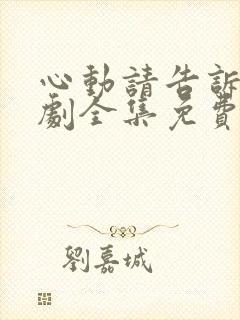 心動請告訴
劇全集免費
劉嘉城